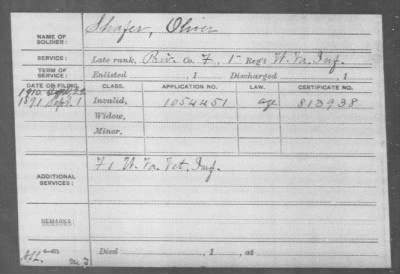 NAME OF SOLDIER: Shafer, Oliver
SERVICE: Late rank, Priv. Co. F, 1" Reg't W. Va. Inf.
TERM OF SERVICE: Enlisted , 1 Discharged , 1
DATE OF FILING. CLASS. APPLICATION NO. LAW. CERTIFICATE NO.
1910
1891 Sept. 1 Invalid, 1054451 age 813938
Widow,
Minor,
ADDITIONAL SERVICES: F 1 W. Va. Vet. Inf.
REMARKS:
Died , 1 , at